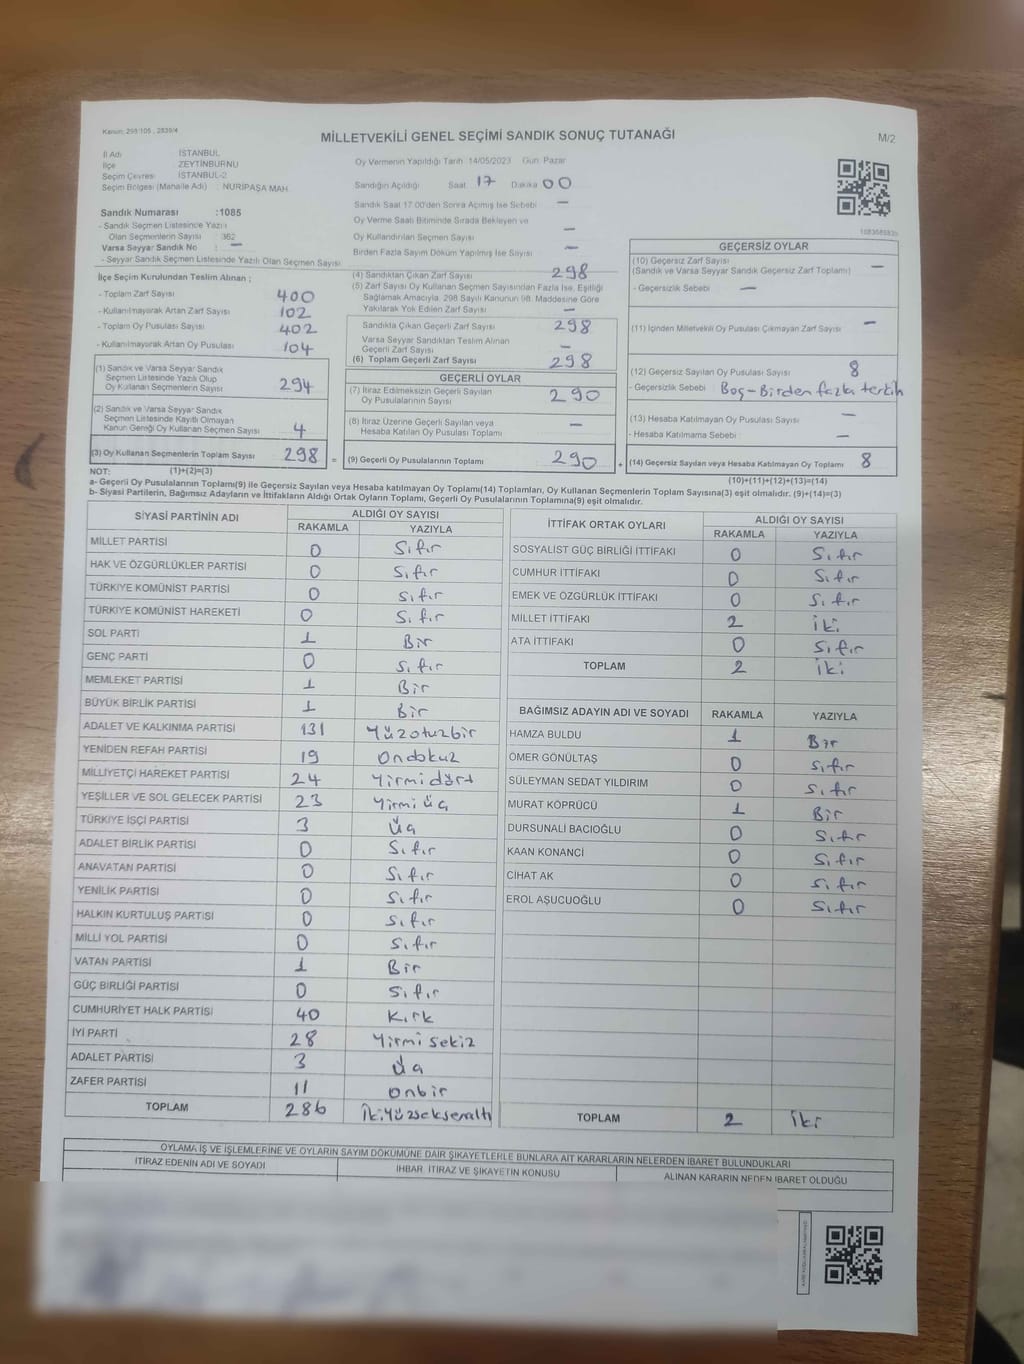 Kanun: 298/105 , 2839/4
MİLLETVEKİLİ GENEL SEÇİMİ SANDIK SONUÇ TUTANAĞI
M/2
İl Adı : İSTANBUL
İlçe : ZEYTİNBURNU
Seçim Çevresi : İSTANBUL-2
Seçim Bölgesi (Mahalle Adı) : NURİPAŞA MAH.
Sandık Numarası :1085
- Sandık Seçmen Listesinde Yazılı
Olan Seçmenlerin Sayısı : 362
Varsa Seyyar Sandık No : –
- Seyyar Sandık Seçmen Listesinde Yazılı Olan Seçmen Sayısı
Oy Vermenin Yapıldığı Tarih 14/05/2023 Gün: Pazar
Sandığın Açıldığı Saat 17 Dakika 00
Sandık Saat 17.00'den Sonra Açılmış İse Sebebi –
Oy Verme Saati Bitiminde Sırada Bekleyen ve
Oy Kullandırılan Seçmen Sayısı –
Birden Fazla Sayım Döküm Yapılmış İse Sayısı –
İlçe Seçim Kurulundan Teslim Alınan ;
- Toplam Zarf Sayısı 400
- Kullanılmayarak Artan Zarf Sayısı 102
- Toplam Oy Pusulası Sayısı 402
- Kullanılmayarak Artan Oy Pusulası 104
(1) Sandık ve Varsa Seyyar Sandık
Seçmen Listesinde Yazılı Olup
Oy Kullanan Seçmenlerin Sayısı 294
(2) Sandık ve Varsa Seyyar Sandık
Seçmen Listesinde Kayıtlı Olmayan
Kanun Gereği Oy Kullanan Seçmen Sayısı 4
(3) Oy Kullanan Seçmenlerin Toplam Sayısı 298 =
(4) Sandıktan Çıkan Zarf Sayısı 298
(5) Zarf Sayısı Oy Kullanan Seçmen Sayısından Fazla İse, Eşitliği
Sağlamak Amacıyla, 298 Sayılı Kanunun 98. Maddesine Göre
Yakılarak Yok Edilen Zarf Sayısı –
Sandıkla Çıkan Geçerli Zarf Sayısı 298
Varsa Seyyar Sandıktan Teslim Alınan
Geçerli Zarf Sayısı –
(6) Toplam Geçerli Zarf Sayısı 298
GEÇERLİ OYLAR
(7) İtiraz Edilmeksizin Geçerli Sayılan
Oy Pusulalarının Sayısı 290
(8) İtiraz Üzerine Geçerli Sayılan veya
Hesaba Katılan Oy Pusulası Toplamı –
(9) Geçerli Oy Pusulalarının Toplamı 290 +
GEÇERSİZ OYLAR
(10) Geçersiz Zarf Sayısı
(Sandık ve Varsa Seyyar Sandık Geçersiz Zarf Toplamı) –
- Geçersizlik Sebebi : –
(11) İçinden Milletvekili Oy Pusulası Çıkmayan Zarf Sayısı –
(12) Geçersiz Sayılan Oy Pusulası Sayısı 8
- Geçersizlik Sebebi : Boş-Birden fazla tercih
(13) Hesaba Katılmayan Oy Pusulası Sayısı –
- Hesaba Katılmama Sebebi –
(14) Geçersiz Sayılan veya Hesaba Katılmayan Oy Toplamı 8
NOT: (1)+(2)=(3)
(10)+(11)+(12)+(13)=(14)
a- Geçerli Oy Pusulalarının Toplamı(9) ile Geçersiz Sayılan veya Hesaba Katılmayan Oy Toplamı(14) Toplamları, Oy Kullanan Seçmenlerin Toplam Sayısına(3) eşit olmalıdır. (9)+(14)=(3)
b- Siyasi Partilerin, Bağımsız Adayların ve İttifakların Aldığı Ortak Oyların Toplamı, Geçerli Oy Pusulalarının Toplamına(9) eşit olmalıdır.
SİYASİ PARTİNİN ADI ALDIĞI OY SAYISI
RAKAMLA YAZIYLA
MİLLET PARTİSİ 0 Sıfır
HAK VE ÖZGÜRLÜKLER PARTİSİ 0 Sıfır
TÜRKİYE KOMÜNİST PARTİSİ 0 Sıfır
TÜRKİYE KOMÜNİST HAREKETİ 0 Sıfır
SOL PARTİ 1 Bir
GENÇ PARTİ 0 Sıfır
MEMLEKET PARTİSİ 1 Bir
BÜYÜK BİRLİK PARTİSİ 1 Bir
ADALET VE KALKINMA PARTİSİ 131 Yüzotuzbir
YENİDEN REFAH PARTİSİ 19 Ondokuz
MİLLİYETÇİ HAREKET PARTİSİ 24 Yirmidört
YEŞİLLER VE SOL GELECEK PARTİSİ 23 Yirmi üç
TÜRKİYE İŞÇİ PARTİSİ 3 Üç
ADALET BİRLİK PARTİSİ 0 Sıfır
ANAVATAN PARTİSİ 0 Sıfır
YENİLİK PARTİSİ 0 Sıfır
HALKIN KURTULUŞ PARTİSİ 0 Sıfır
MİLLİ YOL PARTİSİ 0 Sıfır
VATAN PARTİSİ 1 Bir
GÜÇ BİRLİĞİ PARTİSİ 0 Sıfır
CUMHURİYET HALK PARTİSİ 40 Kırk
İYİ PARTİ 28 Yirmi sekiz
ADALET PARTİSİ 3 Üç
ZAFER PARTİSİ 11 onbir
TOPLAM 286 İkiyüzseksenaltı
İTTİFAK ORTAK OYLARI ALDIĞI OY SAYISI
RAKAMLA YAZIYLA
SOSYALİST GÜÇ BİRLİĞİ İTTİFAKI 0 Sıfır
CUMHUR İTTİFAKI 0 Sıfır
EMEK VE ÖZGÜRLÜK İTTİFAKI 0 Sıfır
MİLLET İTTİFAKI 2 İki
ATA İTTİFAKI 0 Sıfır
TOPLAM 2 İki
BAĞIMSIZ ADAYIN ADI VE SOYADI RAKAMLA YAZIYLA
HAMZA BULDU 1 Bir
ÖMER GÖNÜLTAŞ 0 Sıfır
SÜLEYMAN SEDAT YILDIRIM 0 Sıfır
MURAT KÖPRÜCÜ 1 Bir
DURSUNALİ BACIOĞLU 0 Sıfır
KAAN KONANCİ 0 Sıfır
CİHAT AK 0 Sıfır
EROL AŞUCUOĞLU 0 Sıfır
TOPLAM 2 İki
OYLAMA İŞ VE İŞLEMLERİNE VE OYLARIN SAYIM DÖKÜMÜNE DAİR ŞİKAYETLERLE BUNLARA AİT KARARLARIN NELERDEN İBARET BULUNDUKLARI
İTİRAZ EDENİN ADI VE SOYADI
İHBAR, İTİRAZ VE ŞİKAYETİN KONUSU
ALINAN KARARIN NEDEN İBARET OLDUĞU